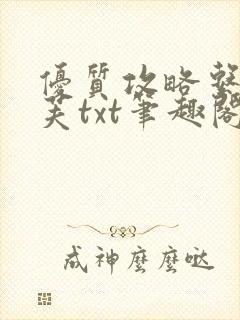 優質攻略整
芙txt筆趣閣
成神麼麼噠